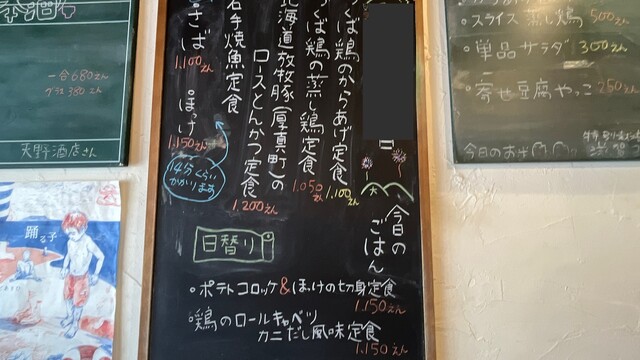 一合680えん
グラス380えん
天野酒店さん
踊る子
今日の
ごはん
くば鶏のからあげ定食
1.100えん
くば鶏の蒸し鶏定食
1.050えん
北海道放牧豚(厚真町)の
ロースとんかつ定食
1.200えん
岩手焼魚定食
さば
1.100えん
ほっけ
1.150えん
14分くらい
かかります
日替り
・ポテトコロッケ&ほっけの切身定食
1.150えん
・鶏のロールキャベツ
カニだし風味定食
1.150えん
・スライス蒸し鶏 500えん
・単品サラダ 300えん
・寄せ豆腐やっこ 250えん
今日のお米